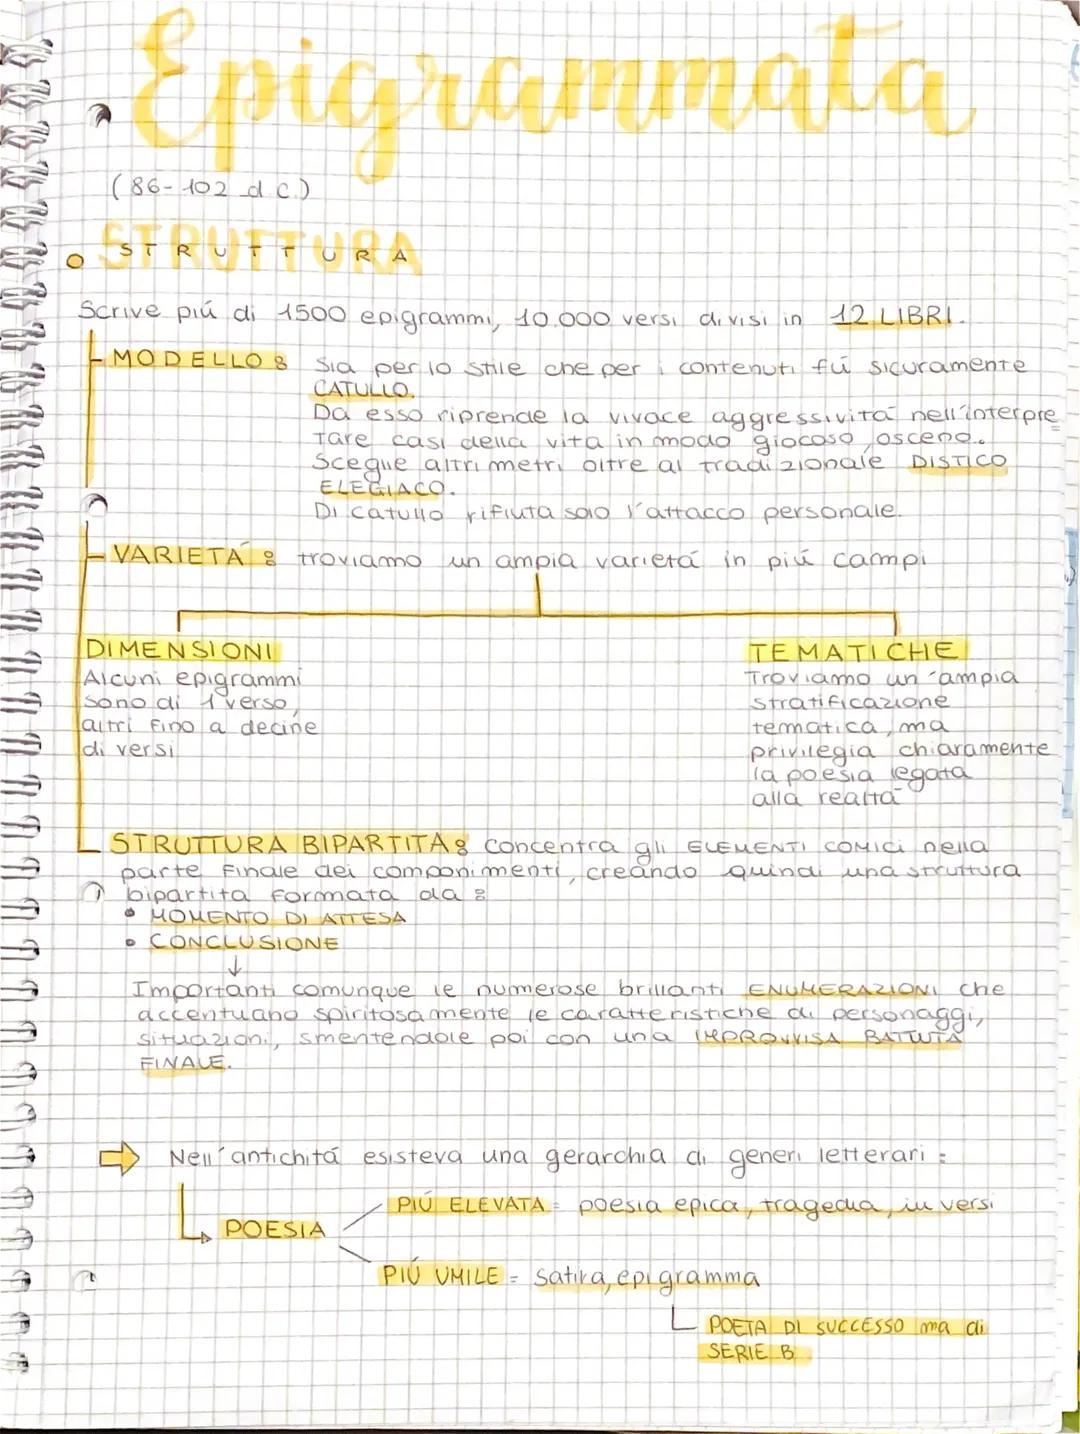 Epigrammata
(86-102 d.C.)
STRUTTURA
Scrive piú di 1500 epigrammi, 10.000 versi divisi in 12 LIBRI.
MODELLO: Sia per lo stile che per i contenuti fú sicuramente
CATULLO.
Da esso riprende la vivace aggressività nell'interpre
tare casi della vita in modo giocoso, osceno.
Scegue altri metri oltre al tradizionale DISTICO
ELEGIACO.
Di catullo rifiuta solo l'attacco personale.
VARIETÁ: troviamo un ampia varietá in piú campi
DIMENSIONI
Alcuni epigrammi
sono di 1 verso,
altri fino a decine
di versi
TEMATICHE
Troviamo un'ampia
stratificazione
tematica, ma
privilegia chiaramente
la poesia legata
alla realtà
STRUTTURA BIPARTITA: concentra gli ELEMENTI COMICI nella
parte finale dei componimenti, creando quindi una struttura
bipartita formata da:
• MOMENTO DI ATTESA
• CONCLUSIONE
↓
Importanti comunque le numerose brillanti ENUMERAZIONI che
accentuano spiritosamente le caratteristiche di personaggi,
situazioni, smentendole poi con una IMPROVVISA BATTUTA
FINALE.
Nell'antichitá esisteva una gerarchia di generi letterari:
POESIA
PIÚ ELEVATA = poesia epica, tragedia, in versi
PIÚ UMILE = satira, epigramma
POETA DI SUCCESSO ma di
SERIE B